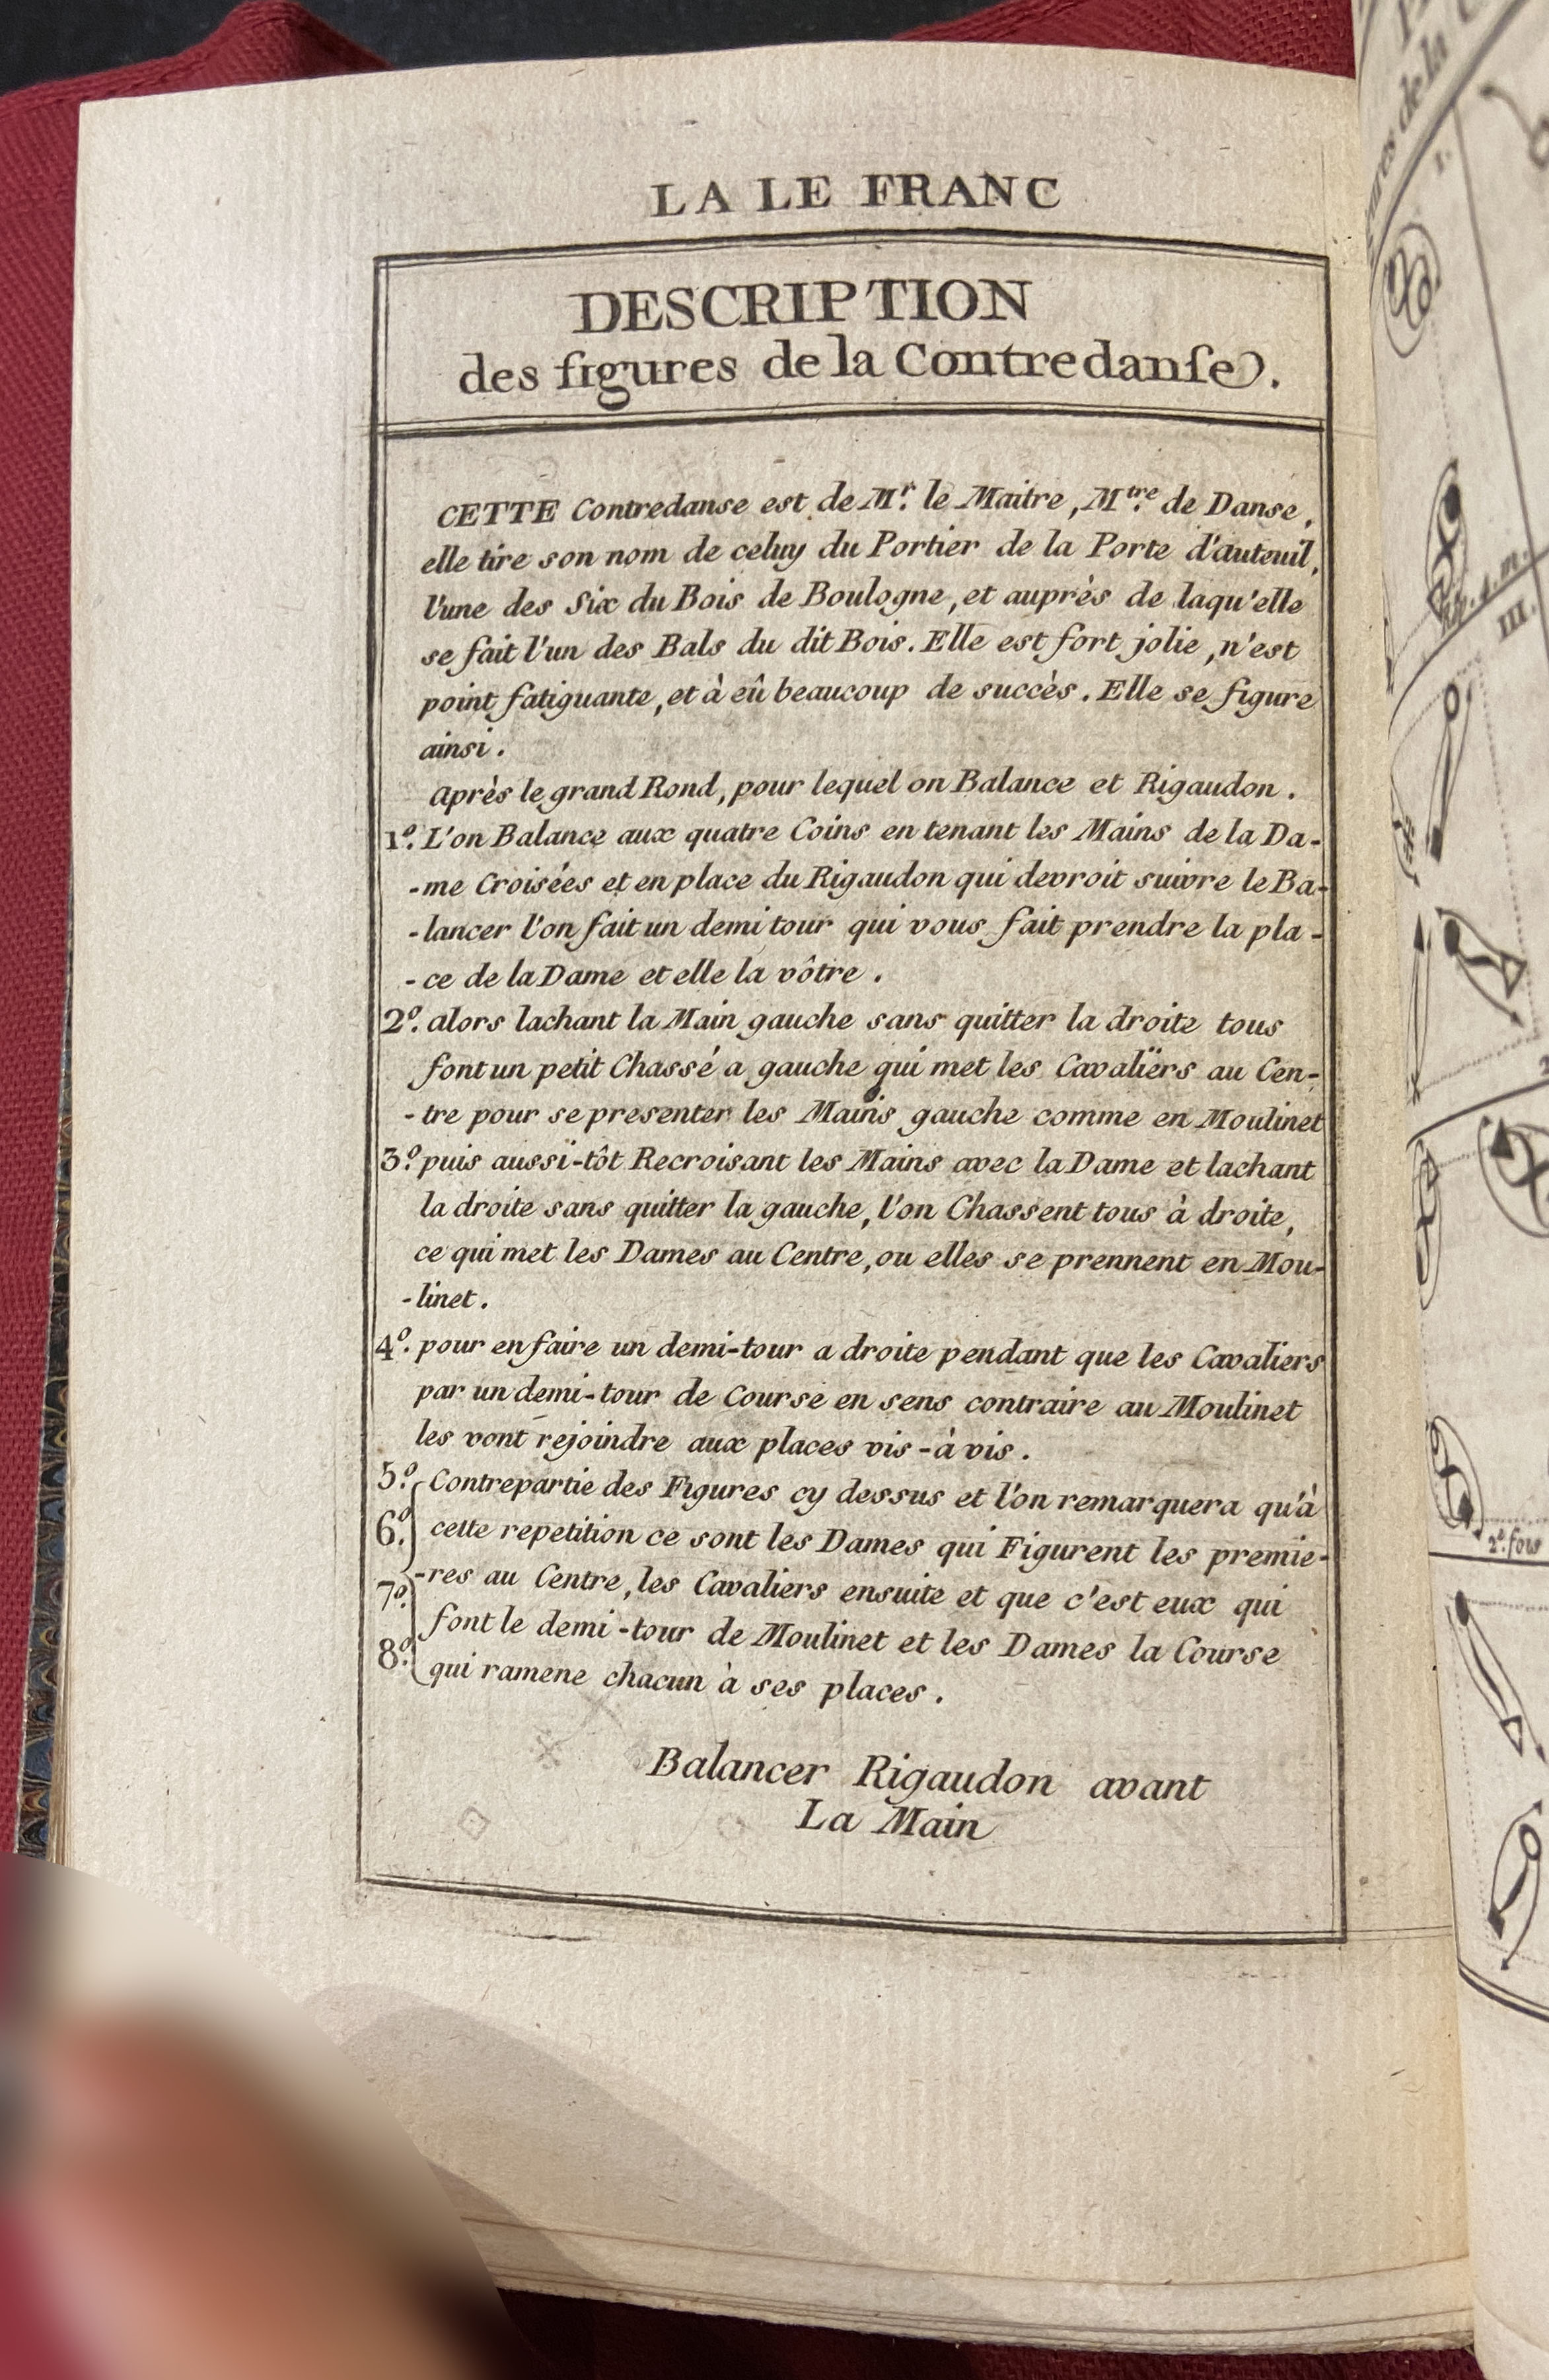 LA LE FRANC
DESCRIPTION
des figures de la Contredanſe.
CETTE Contredanse est de Mr. le Maitre, Mtre. de Danse,
elle tire son nom de celuy du Portier de la Porte d'auteuil,
l'une des Six du Bois de Boulogne, et auprès de laqu'elle
se fait l'un des Bals du dit Bois. Elle est fort jolie, n'est
point fatiguante, et à eû beaucoup de succès. Elle se figure
ainsi.
Après le grand Rond, pour lequel on Balance et Rigaudon.
1º. L'on Balance aux quatre Coins en tenant les Mains de la Da-
-me Croisées et en place du Rigaudon qui devroit suivre le Ba-
-lancer l'on fait un demi tour qui vous fait prendre la pla-
-ce de la Dame et elle la vôtre.
2º. alors lachant la Main gauche sans quitter la droite tous
font un petit Chassé a gauche qui met les Cavaliërs au Cen-
-tre pour se presenter les Mains gauche comme en Moulinet
3º. puis aussi-tôt Recroisant les Mains avec la Dame et lachant
la droite sans quitter la gauche, l'on Chassent tous à droite,
ce qui met les Dames au Centre, ou elles se prennent en Mou-
-linet.
4º. pour en faire un demi-tour a droite pendant que les Cavaliers
par un demi-tour de Course en sens contraire au Moulinet
les vont rejoindre aux places vis-à vis.
5º. Contrepartie des Figures cy dessus et l'on remarquera qu'à
6º. cette repetition ce sont les Dames qui Figurent les premie-
-res au Centre, les Cavaliers ensuite et que c'est eux qui
7º. font le demi-tour de Moulinet et les Dames la Course
8º. qui ramene chacun à ses places.
Balancer Rigaudon avant
La Main
de la
I.
III.
2e. fois